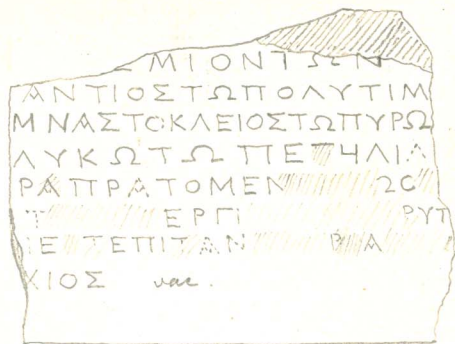 ΜΙΟΝΤΩΝ
ΑΝΤΙΟΣΤΩΠΟΛΥΤΙΜ
ΜΝΑΣΤΟΚΛΕΙΟΣΤΩΠΥΡΩ
ΛΥΚΩΤΩ
ΡΑΠΡΑΤΟΜΕΝ
ΕΡΓ ΡΥΤ
ΙΕ ΤΕΠΙΤΑΝ Ρ Α
ΧΙΟΣ vac.